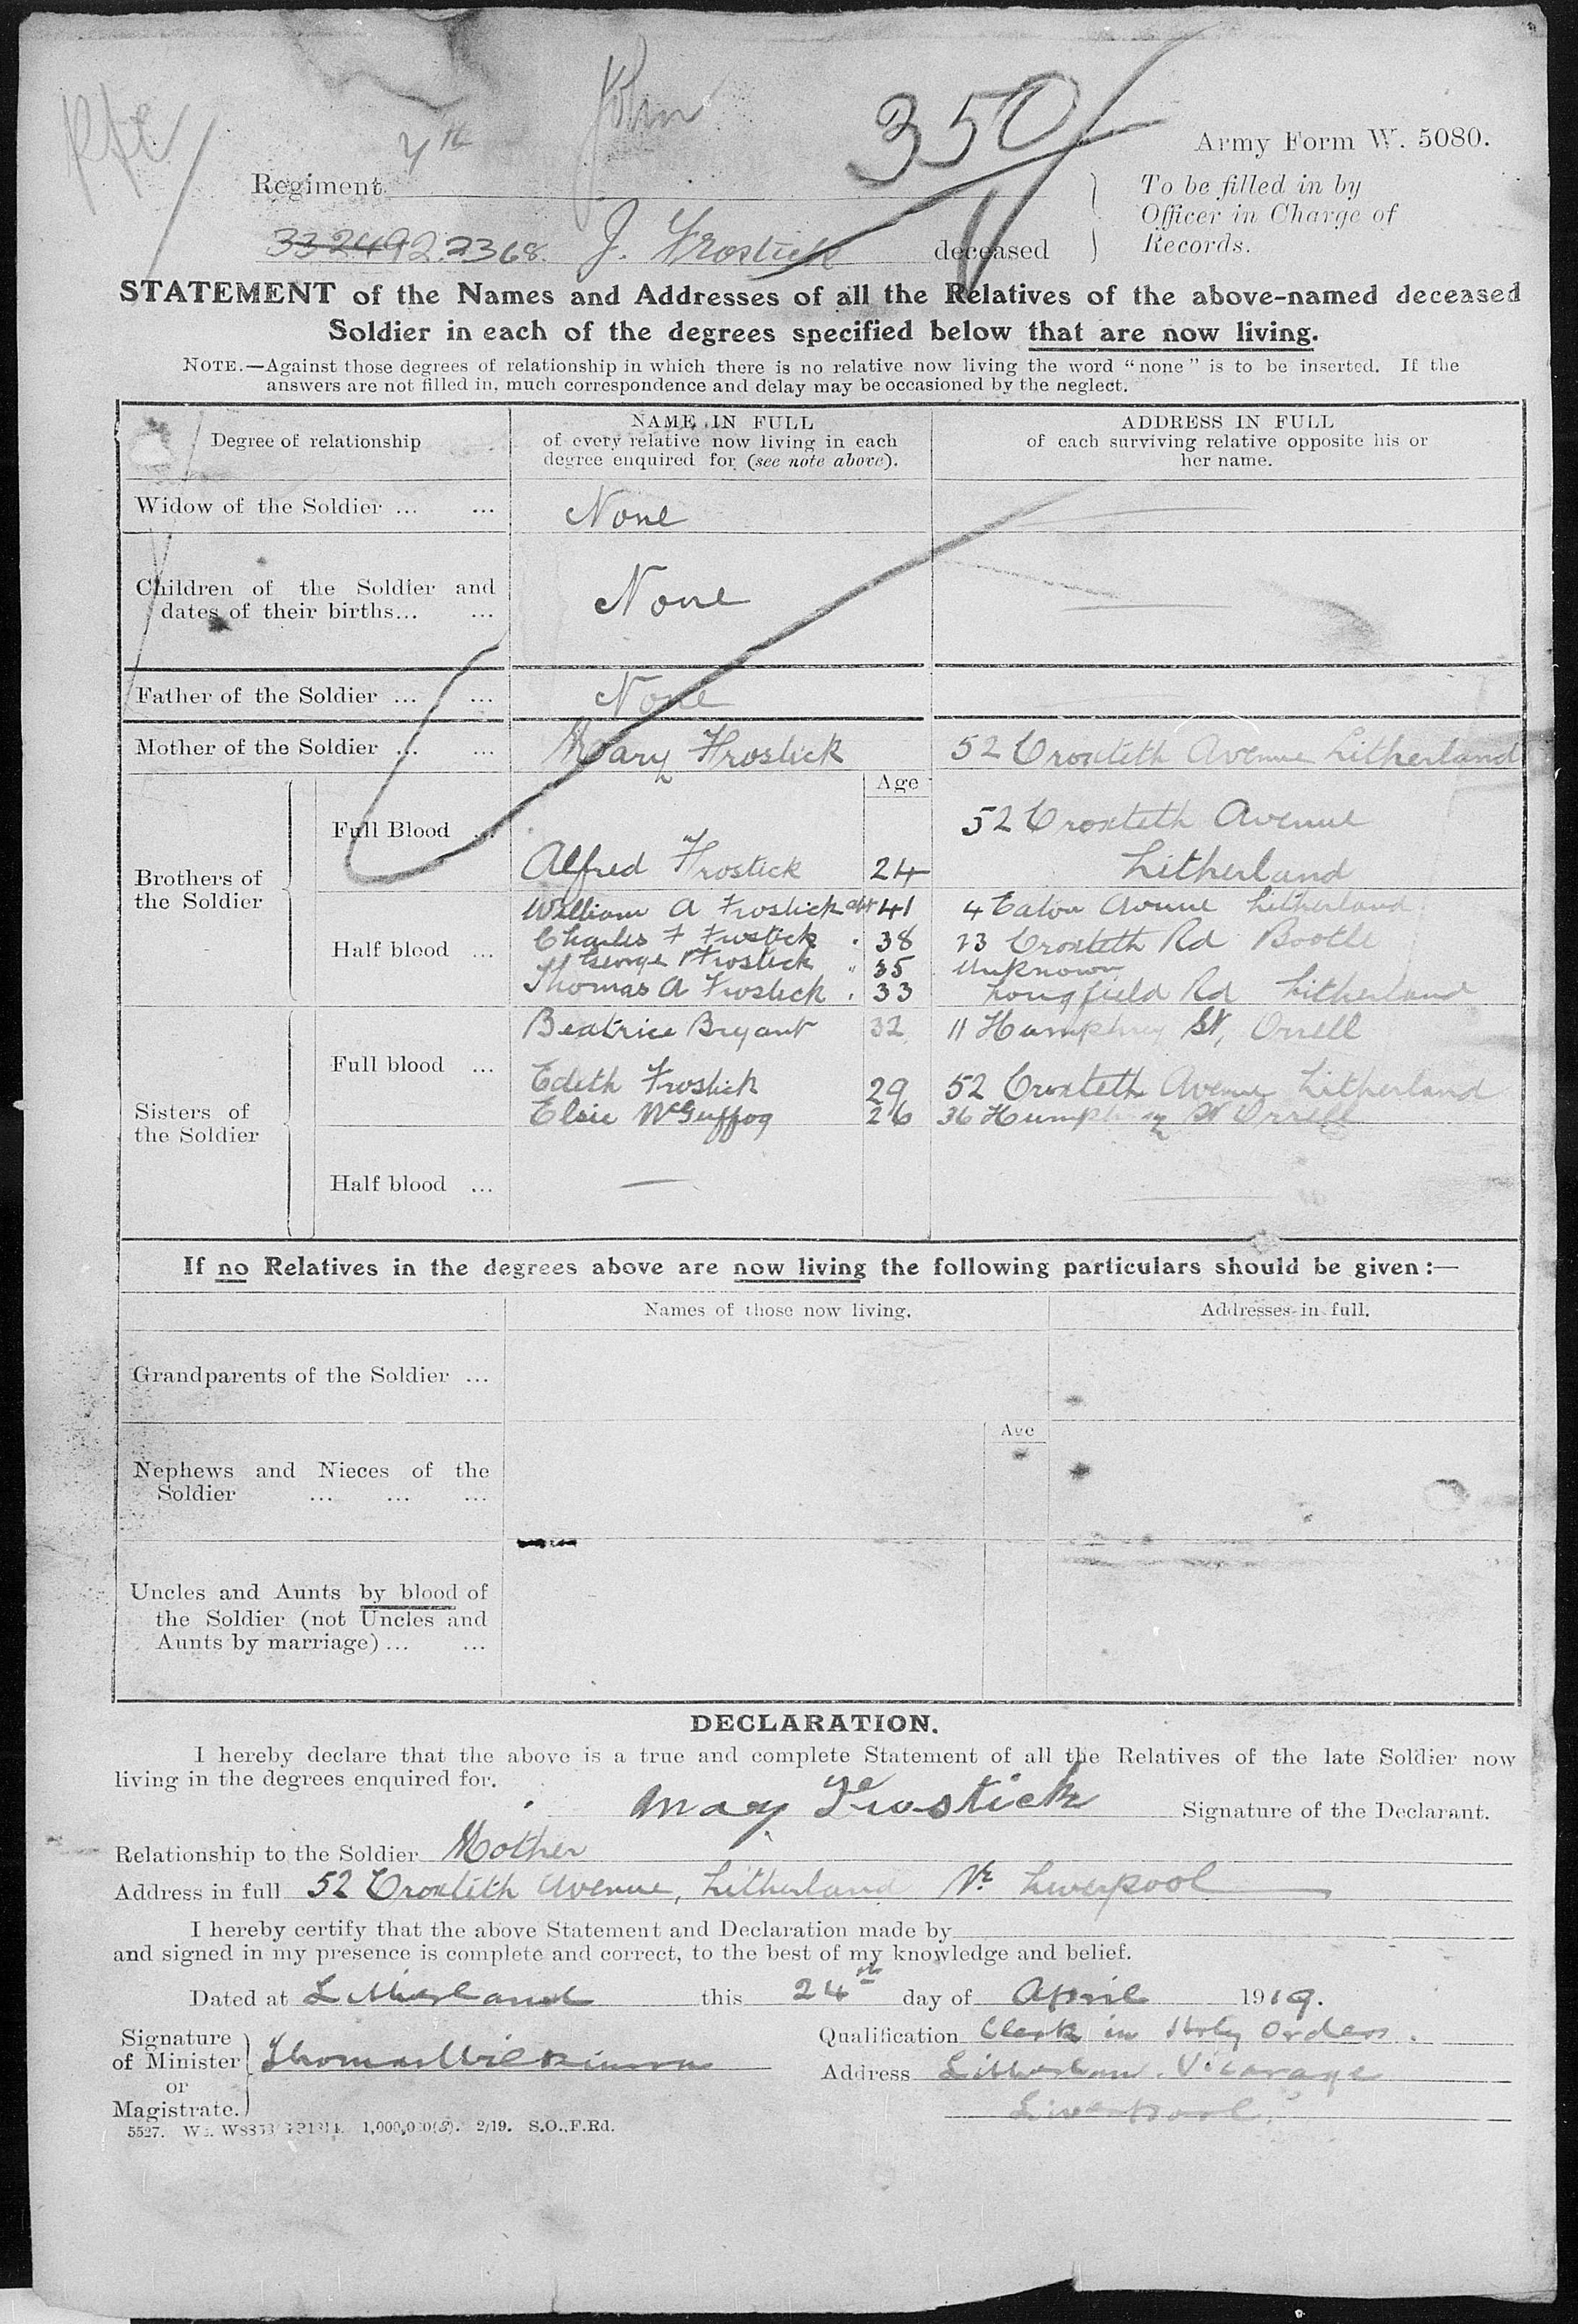 Pte
John
350
Army Form W. 5080.
7th
Regiment
To be filled in by
Officer in Charge of
Records.
332492 2368. J. Frostick deceased
STATEMENT of the Names and Addresses of all the Relatives of the above-named deceased
Soldier in each of the degrees specified below that are now living.
NOTE.—Against those degrees of relationship in which there is no relative now living the word "none" is to be inserted. If the
answers are not filled in, much correspondence and delay may be occasioned by the neglect.
Degree of relationship
NAME IN FULL
of every relative now living in each
degree enquired for (see note above).
ADDRESS IN FULL
of each surviving relative opposite his or
her name.
Widow of the Soldier ... ... None
Children of the Soldier and
dates of their births... ... None
Father of the Soldier ... ... None
Mother of the Soldier ... ... Mary Frostick 52 Croxteth Avenue Litherland
Age
Brothers of
the Soldier
Full Blood ...
52 Croxteth Avenue
Alfred Frostick 24 Litherland
Half blood ...
William A Frostick abt 41 4 Eaton Avenue Litherland
Charles F Frostick " 38 23 Croxteth Rd Bootle
George Frostick " 35 Unknown
Thomas A Frostick " 33 Longfield Rd Litherland
Sisters of
the Soldier
Full blood ...
Beatrice Bryant 32 11 Humphrey St, Orrell
Edith Frostick 29 52 Croxteth Avenue Litherland
Elsie McGuffog 26 36 Humphrey St Orrell
Half blood ... —
If no Relatives in the degrees above are now living the following particulars should be given:—
Names of those now living. Addresses in full.
Grandparents of the Soldier ...
Age
Nephews and Nieces of the
Soldier ... ... ...
Uncles and Aunts by blood of
the Soldier (not Uncles and
Aunts by marriage) ... ...
DECLARATION.
I hereby declare that the above is a true and complete Statement of all the Relatives of the late Soldier now
living in the degrees enquired for.
Mary Frostick Signature of the Declarant.
Relationship to the Soldier Mother
Address in full 52 Croxteth Avenue, Litherland Nr Liverpool
I hereby certify that the above Statement and Declaration made by
and signed in my presence is complete and correct, to the best of my knowledge and belief.
Dated at Litherland this 24th day of April 1919.
Signature
of Minister
or
Magistrate.
Thomas Wilkinson
Qualification Clerk in Holy Orders.
Address Litherland Vicarage
Liverpool.
5527. 1,000,000(8). 2/19. S.O.,F.Rd.